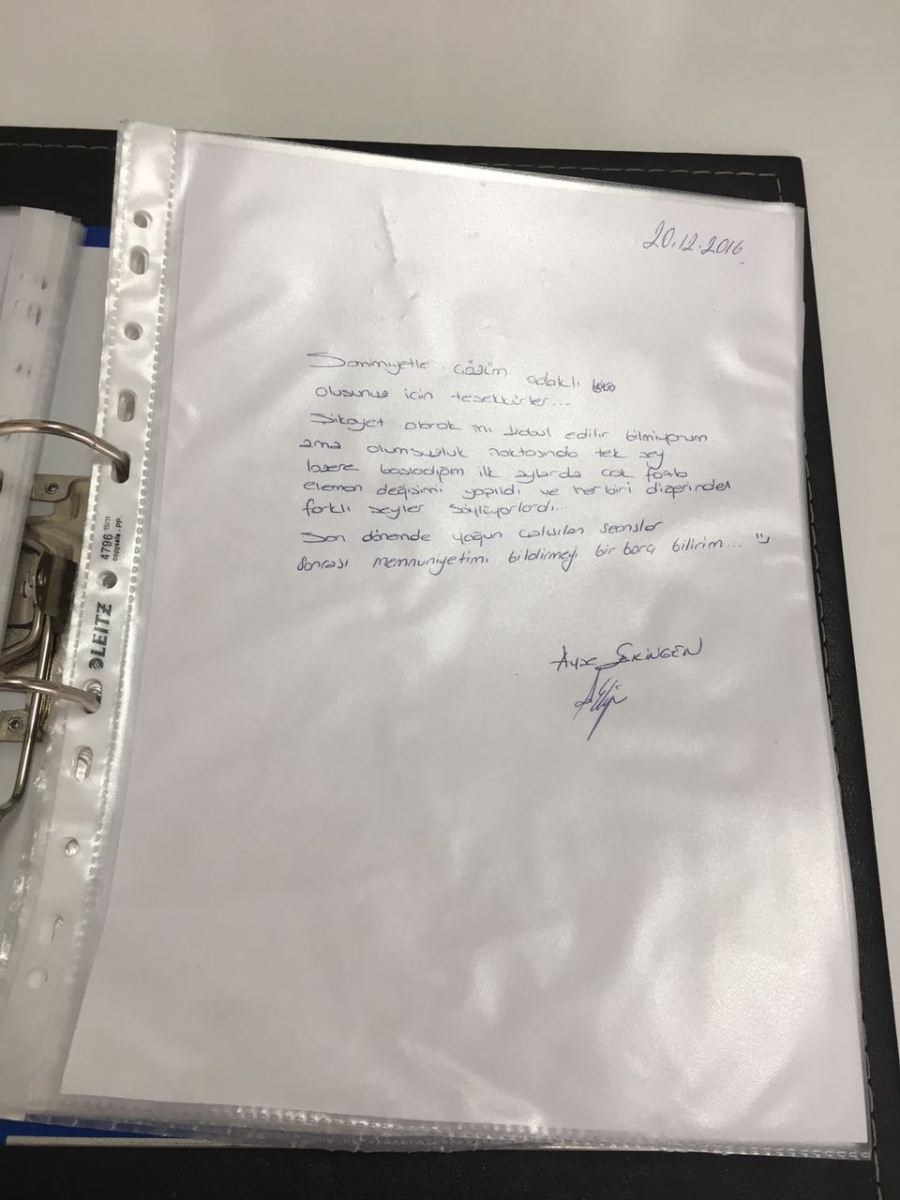 20.12.2016
Samimiyetle çözüm odaklı
olusunuz için tesekkürler...
Şikayet olarak mı kabul edilir bilmiyorum
ama olumsuzluk noktasında tek şey
lazere başladığım ilk aylarda çok fazla
eleman değişimi yapıldı ve herbiri dizerinden
farklı şeyler söylüyorlardı...
Son dönemde yoğun çalışılan seanslar
sonrası memnuniyetimi bildirmeyi bir borç bilirim...
Ayşe
LEITZ
4796
copysafe - PP.